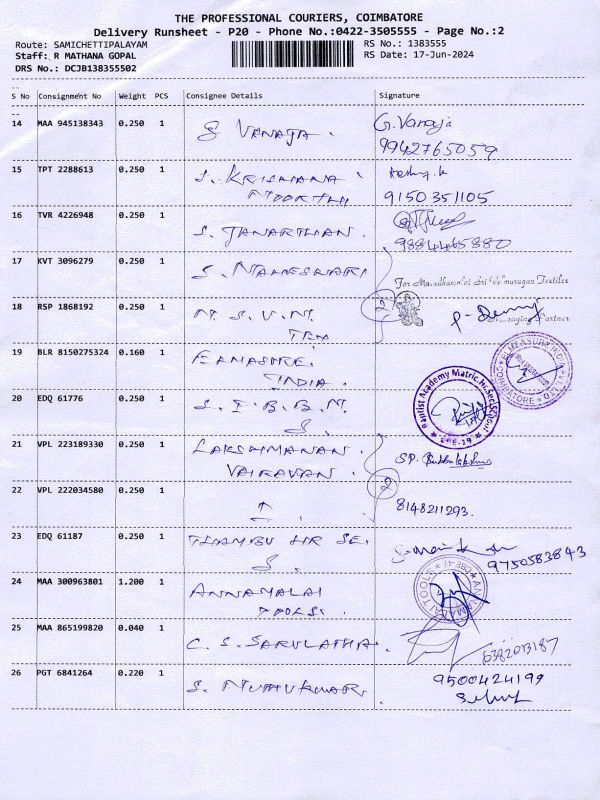 THE PROFESSIONAL COURIERS, COIMBATORE
Delivery Runsheet - P20 - Phone No.:0422-3505555 - Page No.:2
Route: SAMICHETTIPALAYAM RS No.: 1383555
Staff: R MATHANA GOPAL RS Date: 17-Jun-2024
DRS No.: DCJB138355502
S No Consignment No Weight PCS Consignee Details Signature
14 MAA 945138343 0.250 1 S VANAJA. G. Vanaja
9942765059
15 TPT 2288613 0.250 1 S. KRISHANA
MOORTHI 9150351105
16 TVR 4226948 0.250 1 S. JANARTHAN.
9884465880
17 KVT 3096279 0.250 1 S. MAHESWARI For Sri Velmurugan Textiles
18 RSP 1868192 0.250 1 M. S. V. M. 2 P-
TEX Partner
19 BLR 8150275324 0.160 1
INDIA. COIMBATORE
20 EDQ 61776 0.250 1 S. I. B. B. M. Academy Matric.Hr.Sec.School
S. CBE-19
21 VPL 223189330 0.250 1 LAKSHMANAN. SP.
VAIRAVAN. 2
22 VPL 222034580 0.250 1 8148211293.
23 EDQ 61187 0.250 1 THAMBU HR SE.
S. 9750583843
24 MAA 300963801 1.200 1 ANNAMALAI TOOLS
TOOLS.
25 MAA 865199820 0.040 1 C. S. SARULATHA. 6382013187
26 PGT 6841264 0.220 1 S. MUTHUKUMAR. 9500424199